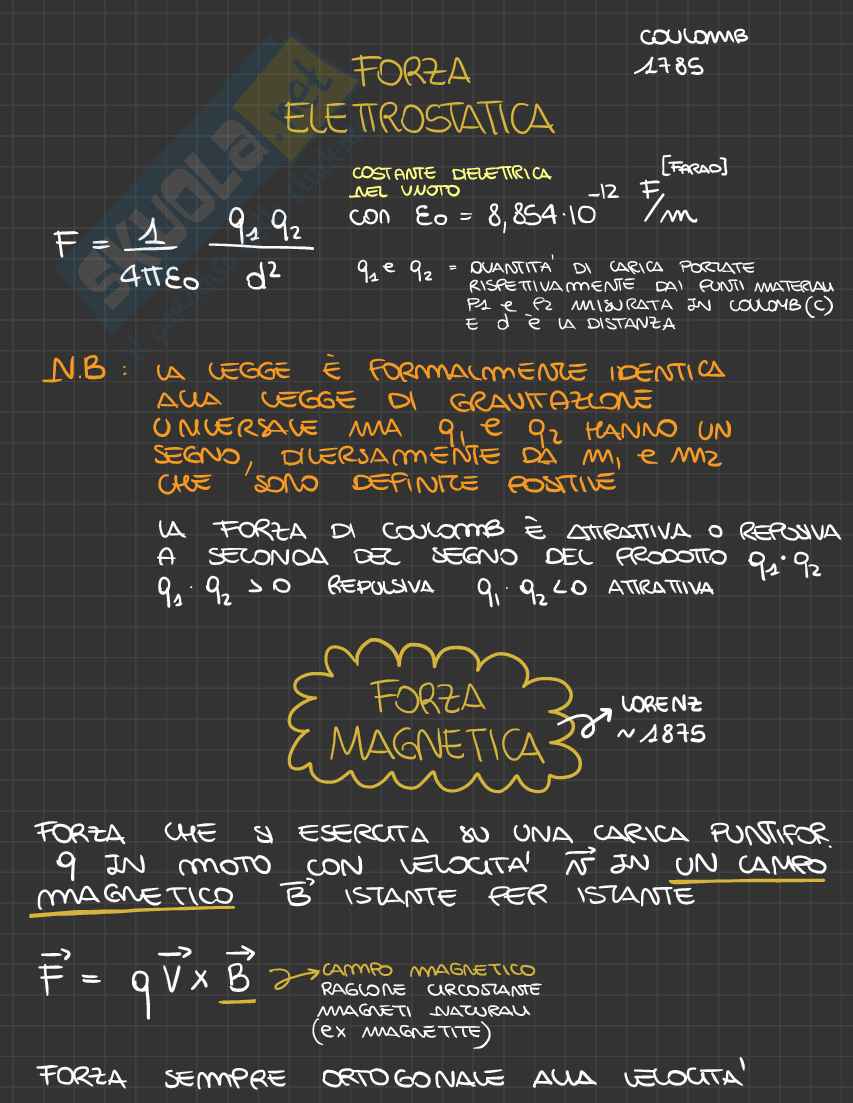 COULOMB
1785
FORZA
ELETTROSTATICA
COSTANTE DIELETTRICA
NEL VUOTO
[FARAD]
F = 1/4πε₀ q₁ q₂/d²
con ε₀ = 8,854·10⁻¹² F/m
q₁ e q₂ = QUANTITA' DI CARICA PORTATE
RISPETIVAMENTE DAI PUNTI MATERIALI
P1 e P2 MISURATA IN COULOMB (C)
E d è LA DISTANZA
N.B : LA LEGGE È FORMALMENTE IDENTICA
ALLA LEGGE DI GRAVITAZIONE
UNIVERSALE MA q₁ e q₂ HANNO UN
SEGNO, DIVERSAMENTE DA m₁ e m₂
CHE SONO DEFINITE POSITIVE
LA FORZA DI COULOMB È ATTRATTIVA O REPULSIVA
A SECONDA DEL SEGNO DEL PRODOTTO q₁·q₂
q₁·q₂ > 0 REPULSIVA q₁·q₂ < 0 ATTRATTIVA
FORZA
MAGNETICA
LORENZ
~1875
FORZA CHE SI ESERCITA SU UNA CARICA PUNTIFOR.
q IN MOTO CON VELOCITA' v⃗ IN UN CAMPO
MAGNETICO B⃗ ISTANTE PER ISTANTE
F⃗ = q V⃗ x B⃗
CAMPO MAGNETICO
RAGIONE CIRCOSTANTE
MAGNETI NATURALI
(ex MAGNETITE)
FORZA SEMPRE ORTOGONALE ALLA VELOCITA'
SKUOLA.net